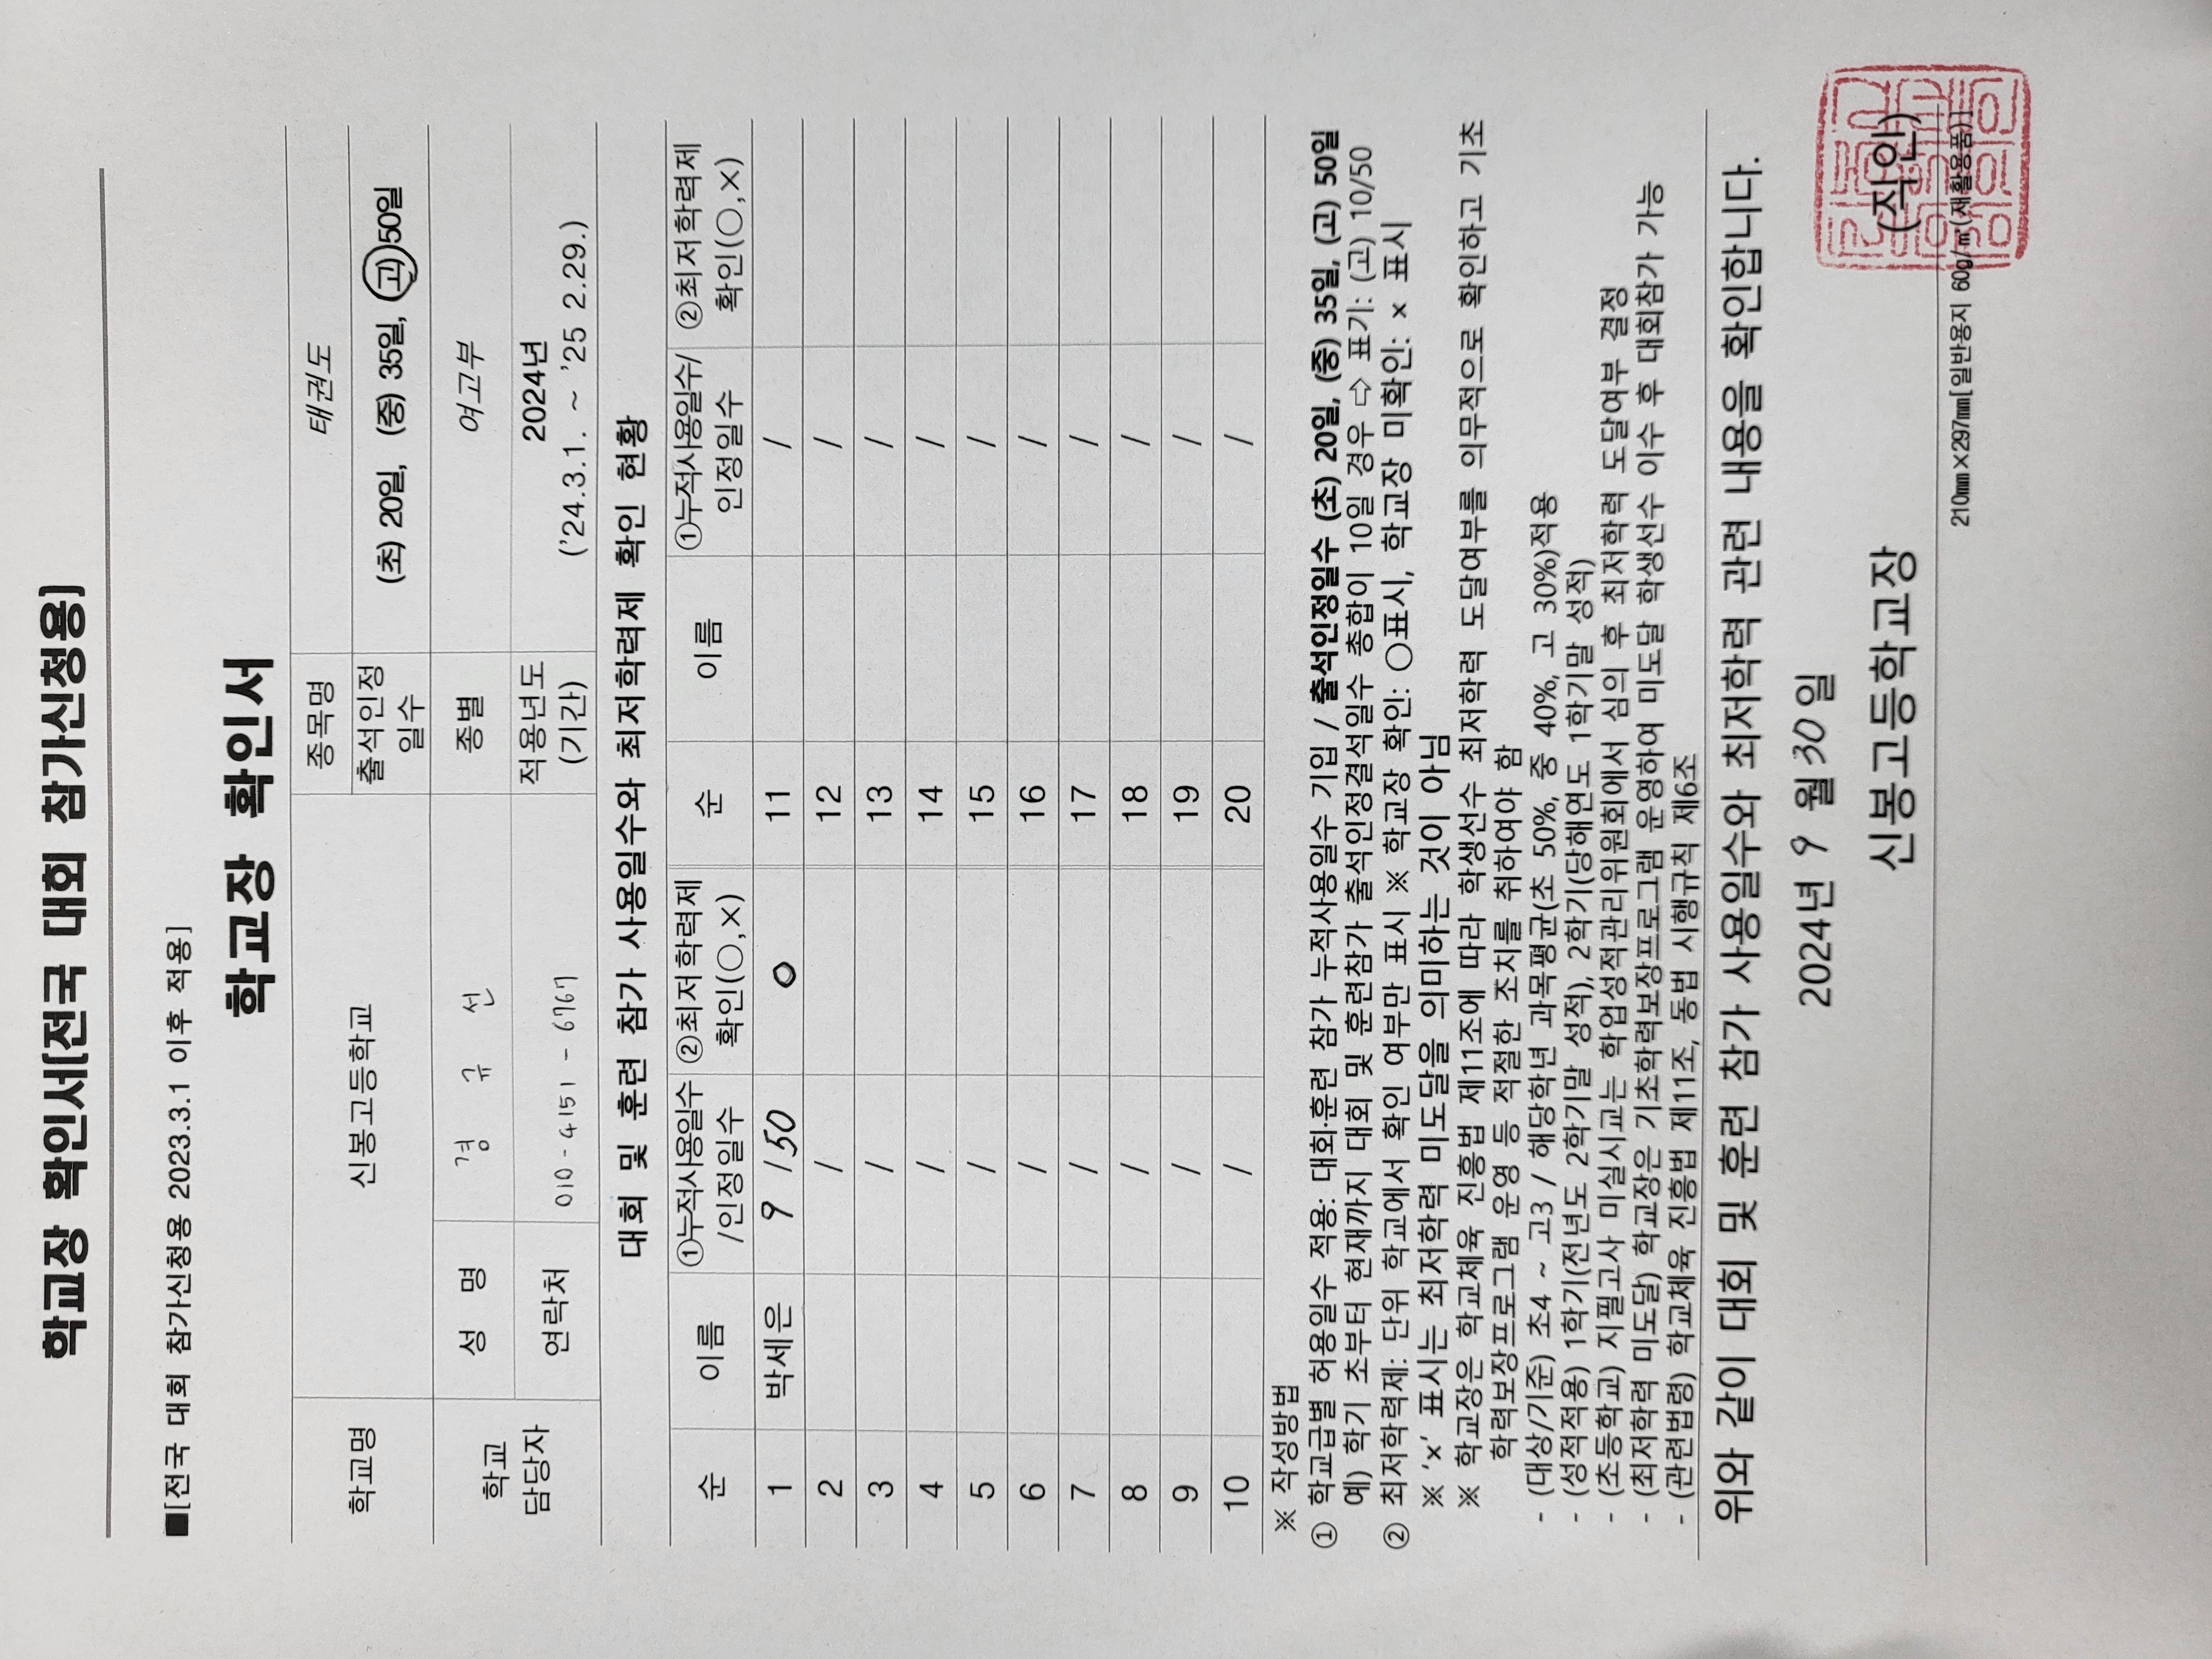 학교장 확인서[전국 대회 참가신청용]
■[전국 대회 참가신청용 2023.3.1 이후 적용]
학교장 확인서
학교명 신봉고등학교 종목명 태권도
출석인정일수 (초) 20일, (중) 35일, (고)50일
학교 담당자 성 명 경 규 선 종별 여고부
연락처 010-4151-6767 적용년도 (기간) 2024년 ('24.3.1. ~ '25 2.29.)
대회 및 훈련 참가 사용일수와 최저학력제 확인 현황
순 이름 ①누적사용일수/인정일수 ②최저학력제 확인(○,×) 순 이름 ①누적사용일수/인정일수 ②최저학력제 확인(○,×)
1 박세은 9 / 50 O 11 /
2 / 12 /
3 / 13 /
4 / 14 /
5 / 15 /
6 / 16 /
7 / 17 /
8 / 18 /
9 / 19 /
10 / 20 /
※ 작성방법
① 학교급별 허용일수 적용: 대회·훈련 참가 누적사용일수 기입 / 출석인정일수 (초) 20일, (중) 35일, (고) 50일
예) 학기 초부터 현재까지 대회 및 훈련참가 출석인정결석일수 총합이 10일 경우 ⇨ 표기: (고) 10/50
② 최저학력제: 단위 학교에서 확인 여부만 표시 ※ 학교장 확인: ○표시, 학교장 미확인: × 표시
※ '×' 표시는 최저학력 미도달을 의미하는 것이 아님
※ 학교장은 학교체육 진흥법 제11조에 따라 학생선수 최저학력 도달여부를 의무적으로 확인하고 기초
학력보장프로그램 운영 등 적절한 조치를 취하여야 함
- (대상/기준) 초4 ~ 고3 / 해당학년 과목평균(초 50%, 중 40%, 고 30%)적용
- (성적적용) 1학기(전년도 2학기말 성적), 2학기(당해연도 1학기말 성적)
- (초등학교) 지필고사 미실시교는 학업성적관리위원회에서 심의 후 최저학력 도달여부 결정
- (최저학력 미도달) 학교장은 기초학력보장프로그램 운영하여 미도달 학생선수 이수 후 대회참가 가능
- (관련법령) 학교체육 진흥법 제11조, 동법 시행규칙 제6조
위와 같이 대회 및 훈련 참가 사용일수와 최저학력 관련 내용을 확인합니다.
2024년 9 월 30 일
신봉고등학교장 (직인)
210㎜×297㎜[일반용지 60g/㎡(재활용품)]